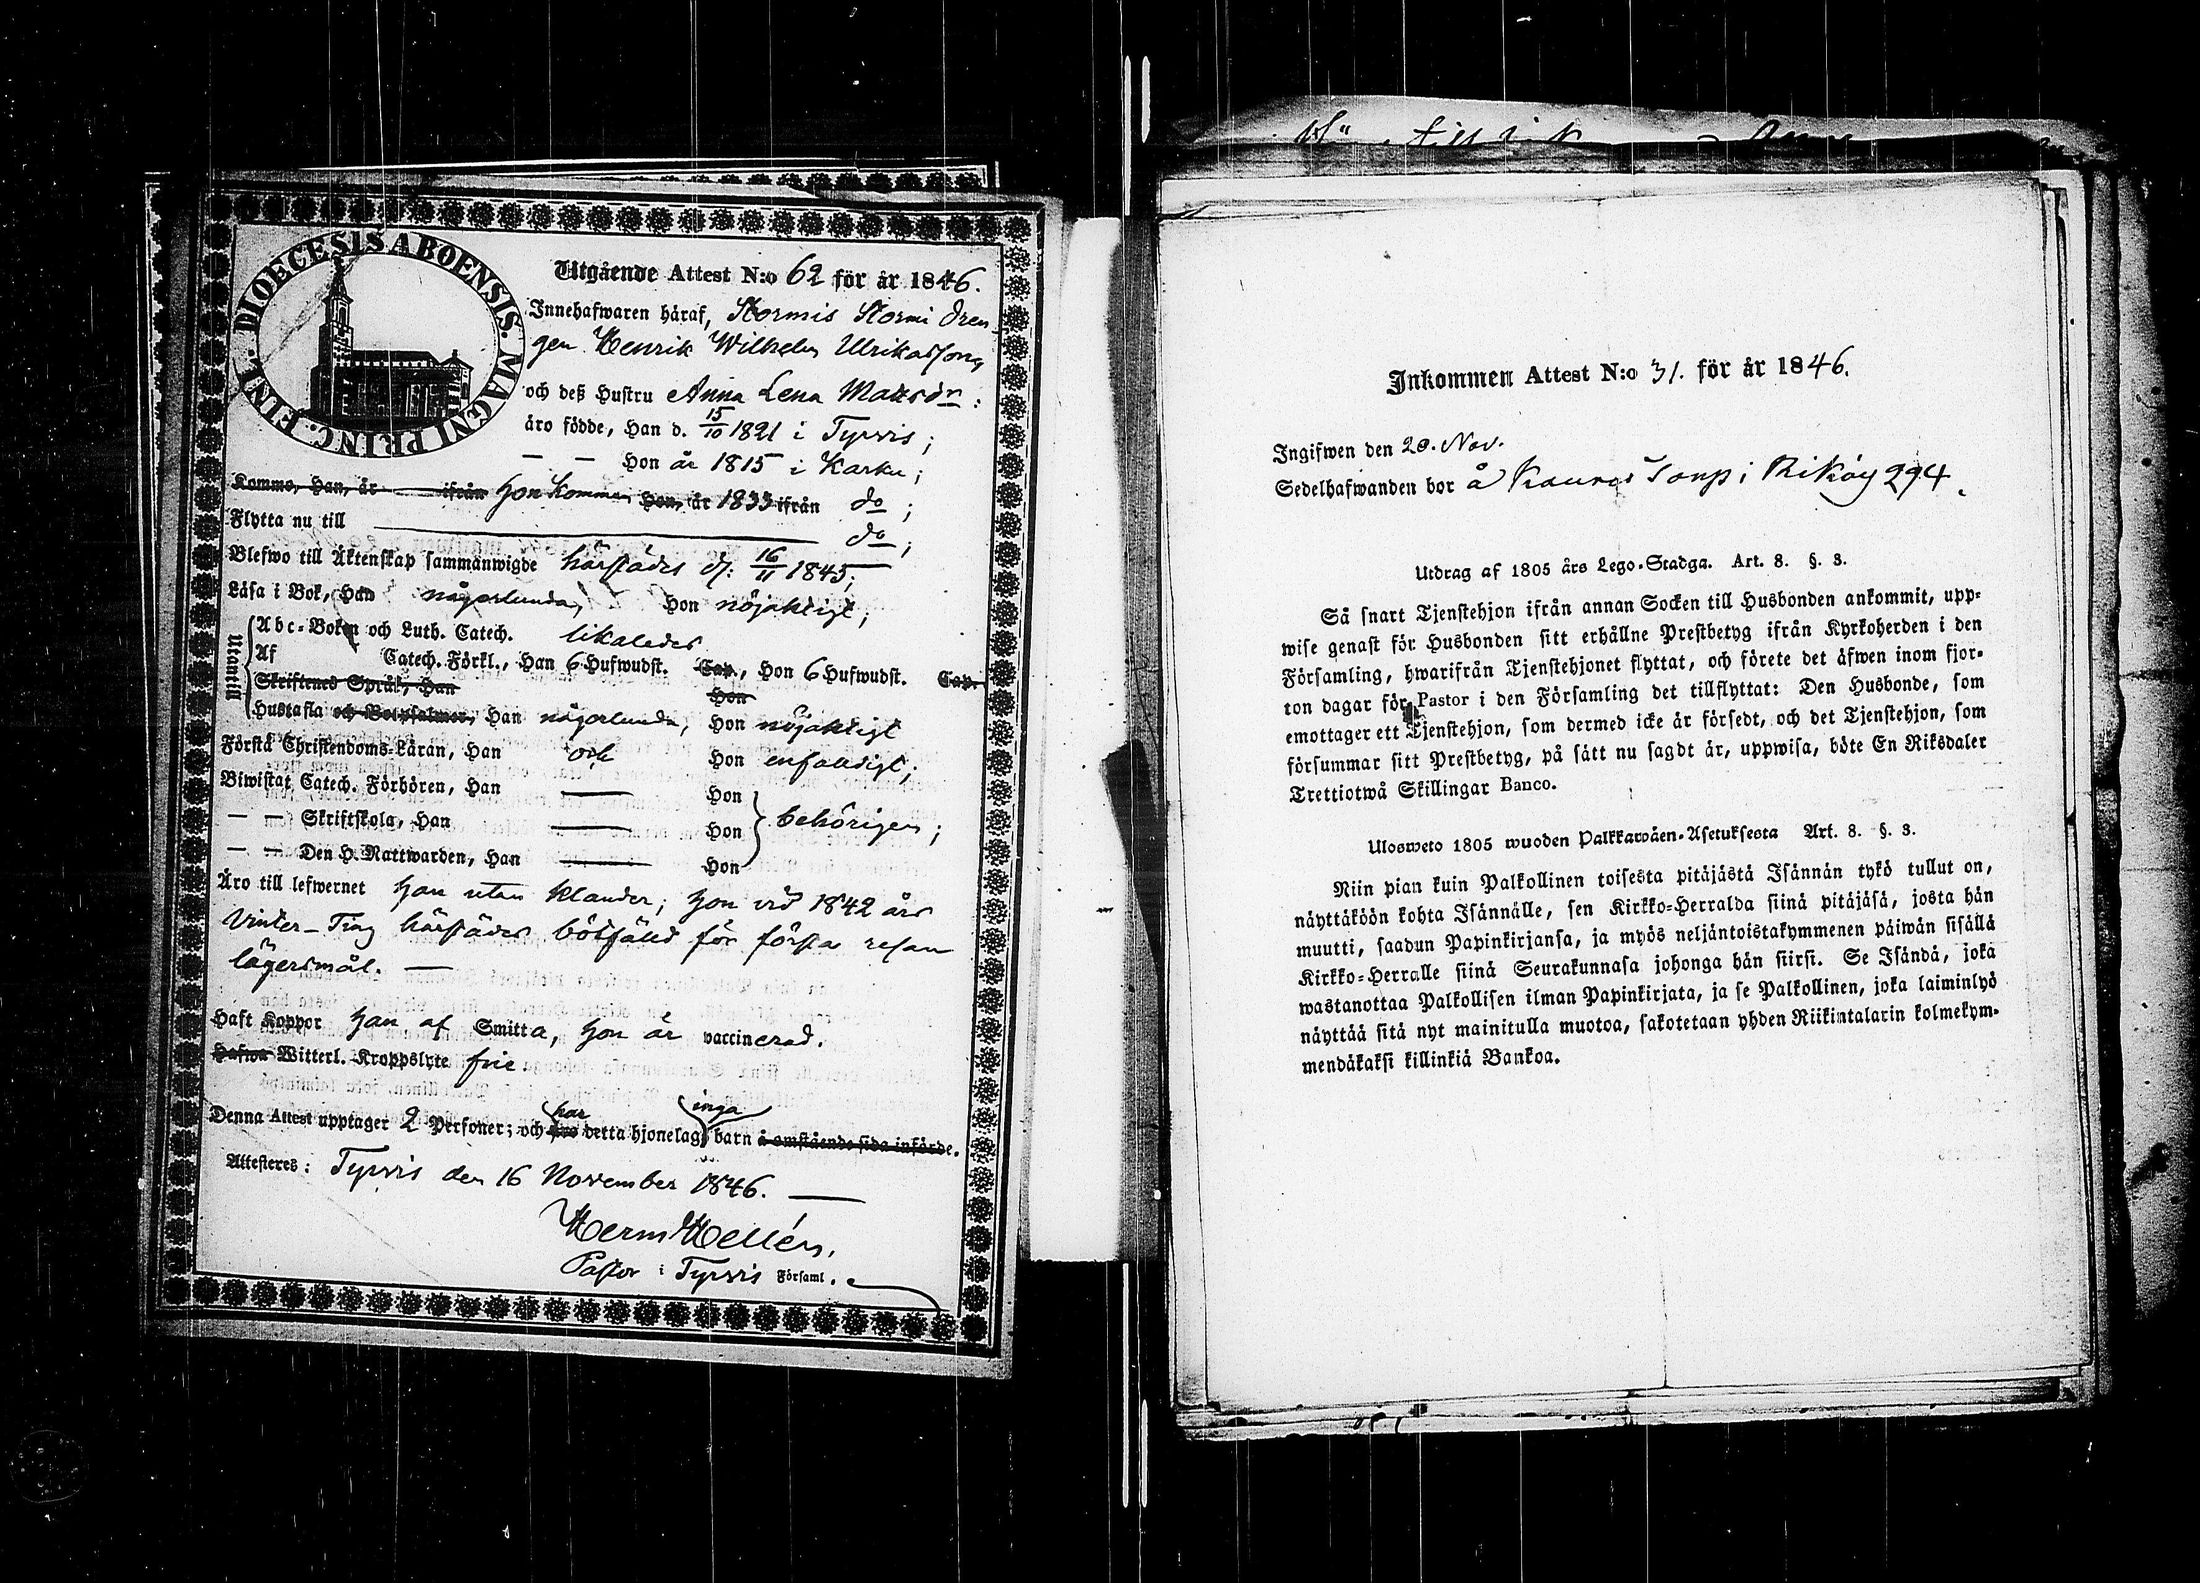 FINL. DIOECESIS ABOENSIS. MAGNI PRINC.
Utgående Attest N:o 62 för år 1846.
Innehafwaren häraf, Stormis Stormi dren-
gen Henrik Wilhelm Ulrikasson,
och deß Hustru Anna Lena Matsdr:
äro födde, Han d. 15/10 1821 i Tyrvis;
— — Hon år 1815 i Karku;
Kommo, Han, år ifrån Hon kommen Hon, år 1833 ifrån do;
Flytta nu till do;
Blefwo till Äktenskap sammanwigde härstädes d: 16/11 1845;
Läsa i Bok, Han någorlunda, Hon nöjaktigt;
Utantill
Abc-Boken och Luth. Catech. likaledes
Af Catech. Förkl., Han 6 Hufwudst. Cap., Hon 6 Hufwudst. Cap.
Skriftenes Språk, Han Hon
Hustafla och Botpsalmer, Han någorlunda, Hon nöjaktigt
Förstå Christendoms-Läran, Han och Hon enfaldigt;
Biwistat Catech. Förhören, Han — Hon
— — Skriftskola, Han — Hon behörigen;
— — Den H. Nattwarden, Han — Hon
Äro till lefwernet Han utan klander; Hon vid 1842 års
Vinter-Ting härstädes bötfälld för första resan
lägersmål. —
Haft Koppor Han af Smitta, Hon är vaccinerad.
Hafwa Witterl. Kroppslyte frie.
Denna Attest upptager 2 Personer; och äro har detta hjonelag inga barn å omstående sida införde.
Attesteres: Tyrvis den 16 November 1846. —
Herm Hellén,
Pastor i Tyrvis Församl.
Inkommen Attest N:o 31. för år 1846.
Ingifwen den 20. Nov.
Sedelhafwanden bor å i 294.
Utdrag af 1805 års Lego-Stadga. Art. 8. §. 3.
Så snart Tjenstehjon ifrån annan Socken till Husbonden ankommit, upp-
wise genast för Husbonden sitt erhållne Prestbetyg ifrån Kyrkoherden i den
Församling, hwarifrån Tjenstehjonet flyttat, och förete det äfwen inom fjor-
ton dagar för Pastor i den Församling det tillflyttat: Den Husbonde, som
emottager ett Tjenstehjon, som dermed icke är försedt, och det Tjenstehjon, som
försummar sitt Prestbetyg, på sätt nu sagdt är, uppwisa, böte En Riksdaler
Trettiotwå Skillingar Banco.
Ulosweto 1805 wuoden Palkkawäen-Asetuksesta Art. 8. §. 3.
Niin pian kuin Palkollinen toisesta pitäjästä Isännän tykö tullut on,
näyttäköön kohta Isännälle, sen Kirkko-Herralda siinä pitäjäsä, josta hän
muutti, saadun Papinkirjansa, ja myös neljäntoistakymmenen päiwän sisällä
Kirkko-Herralle siinä Seurakunnasa johonga hän siirsi. Se Isändä, joka
wastanottaa Palkollisen ilman Papinkirjata, ja se Palkollinen, joka laiminlyö
näyttää sitä nyt mainitulla muotoa, sakotetaan yhden Riikintalarin kolmekym-
mendäkaksi killinkiä Bankoa.